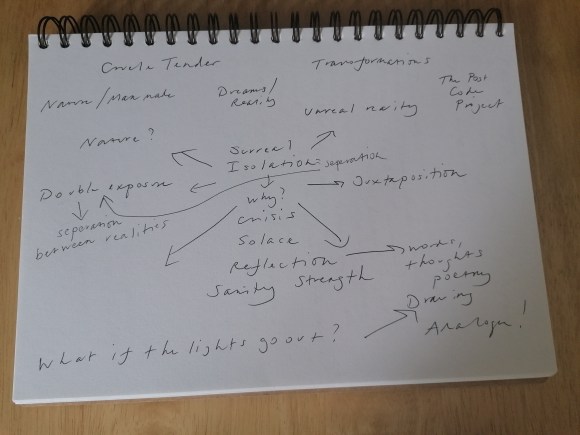 Cruele Tender
Transformations
Nature/Man made
Dreams/
Reality
Unreal reality
The Post
Code
Project
Nature?
Surreal
Isolation = separation
Double exposure
Juxtaposition
separation
between realities
Why?
Crisis
Solace
Reflection
Sanity Strength
words,
thoughts
poetry
Drawing
Analogue!
What if the lights go out?